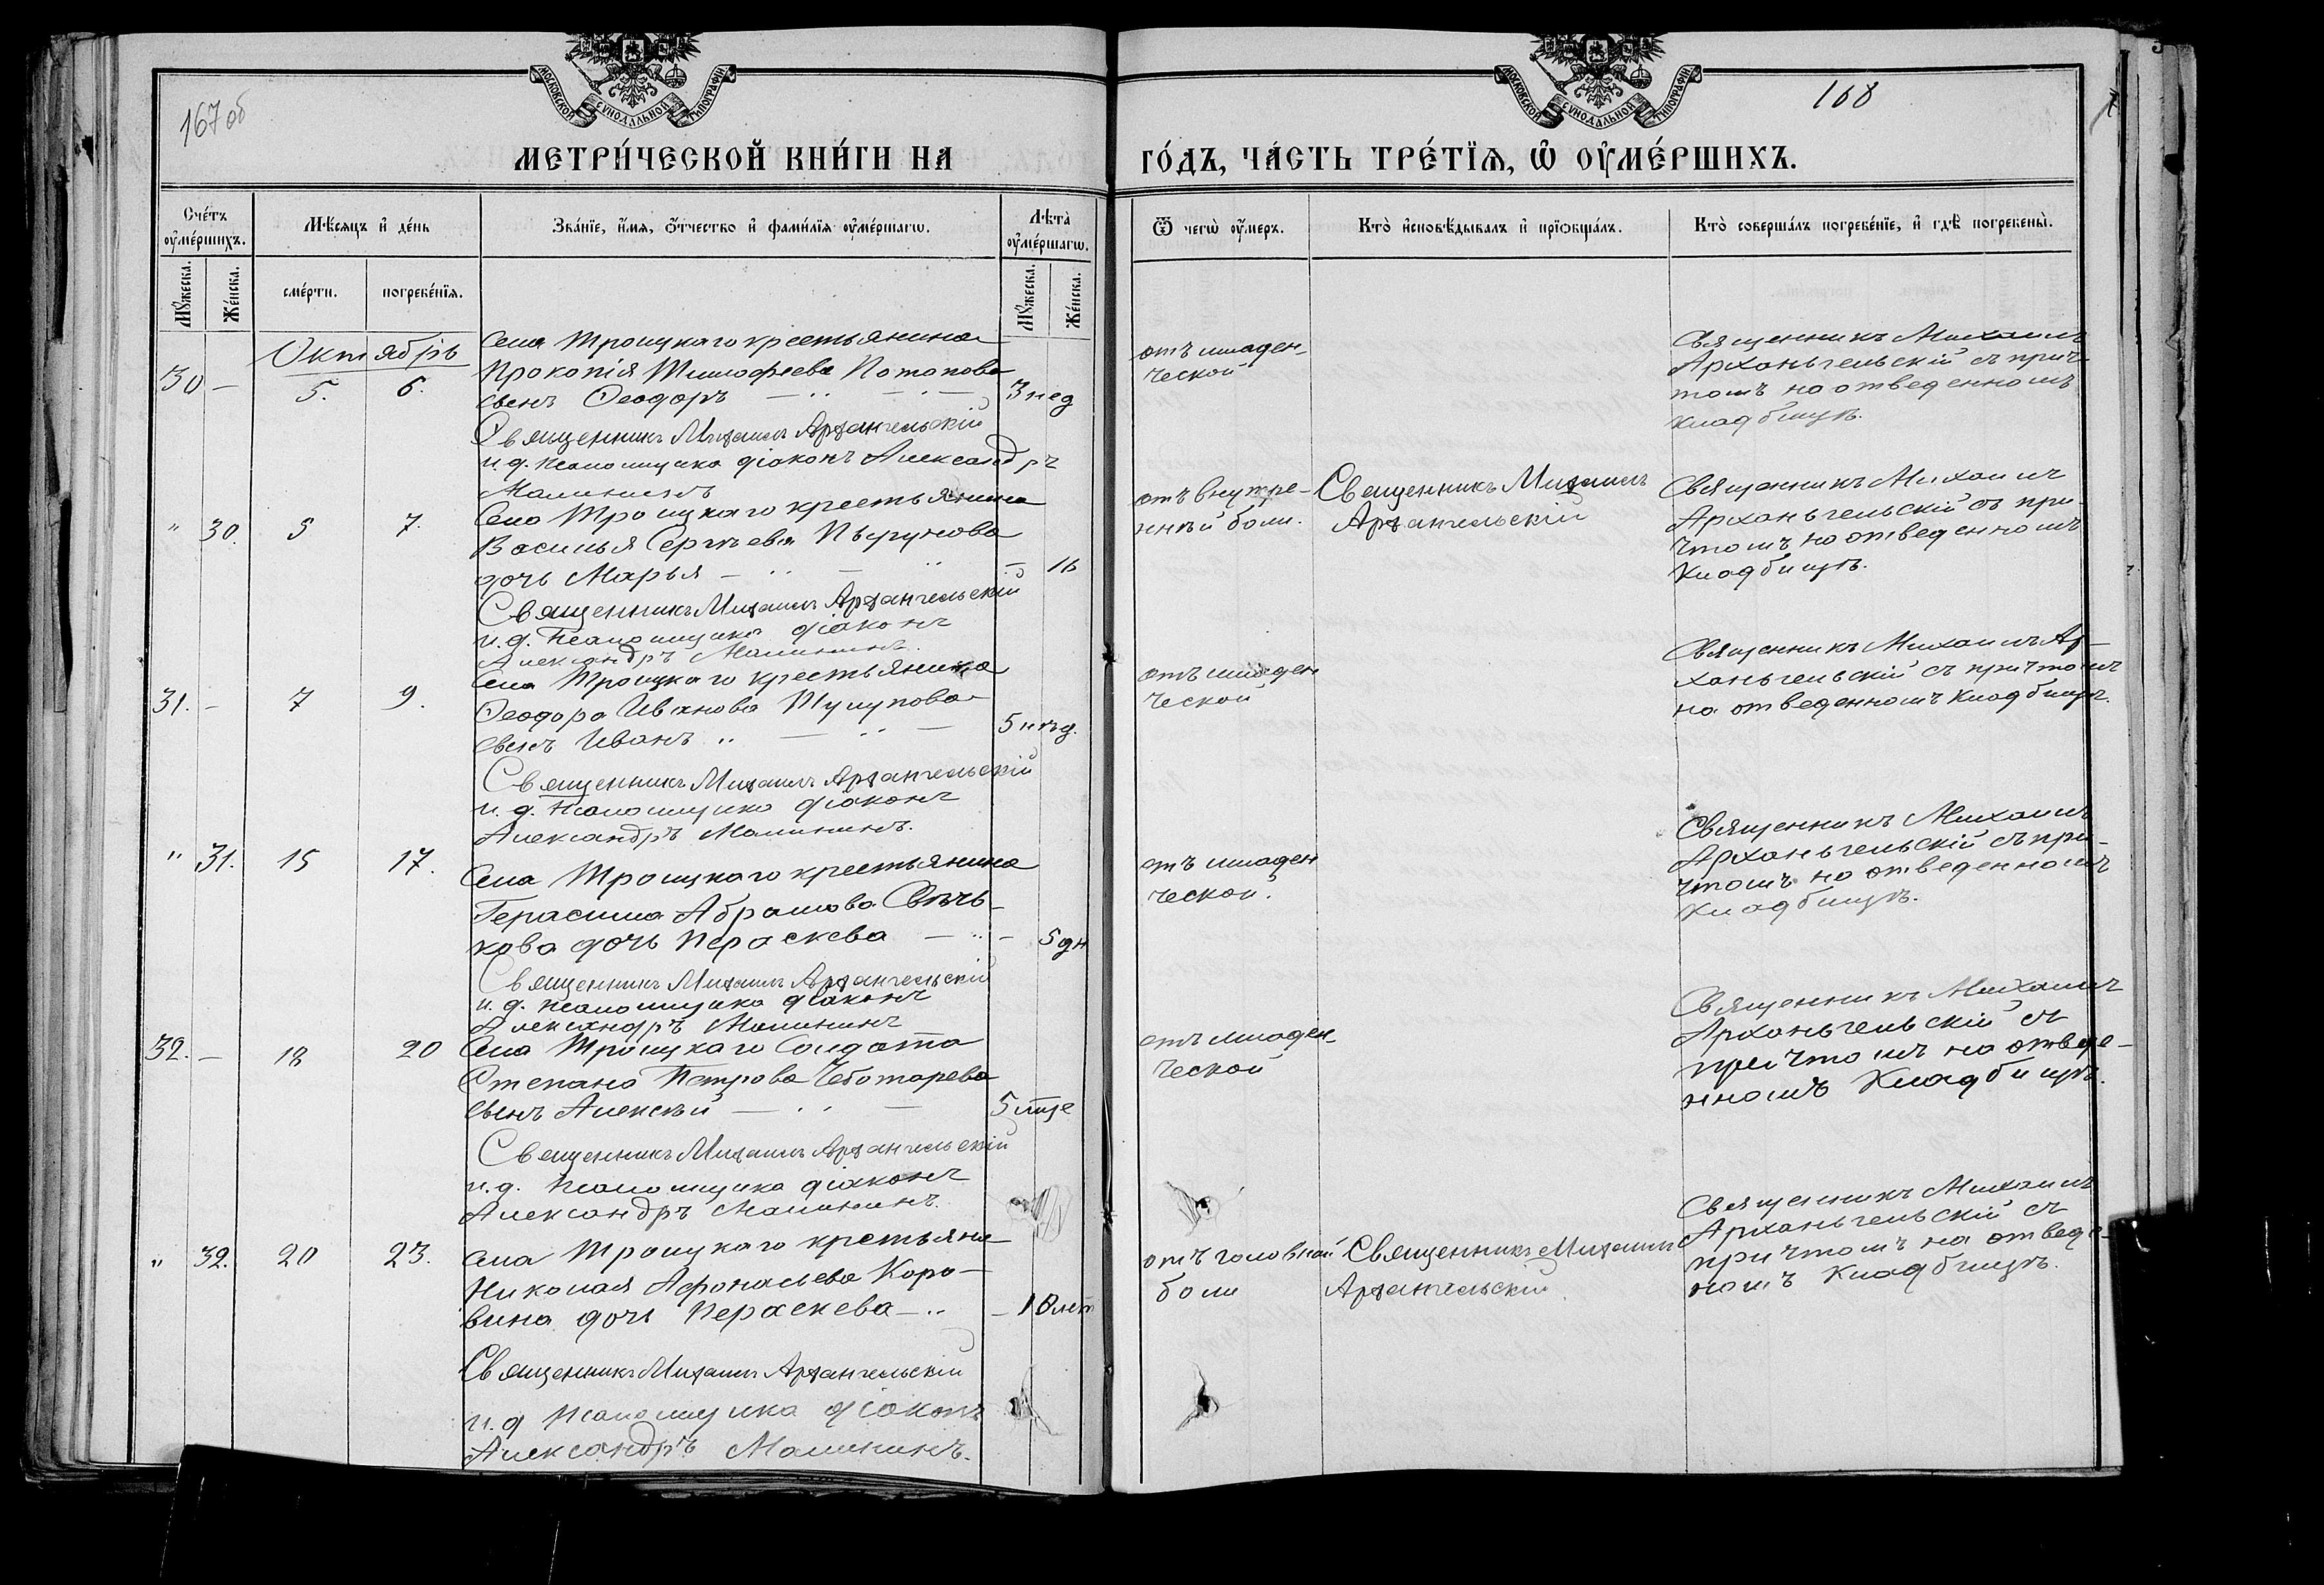 167 об
МОСКОВСКОЙ СУНОДАЛЬНОЙ ТИПОГРАФІИ
МЕТРИ́ЧЕСКОЙ КНИ́ГИ НА
Сче́тъ ᲂу҆ме́ршихъ.
Мѣ́сяцъ и҆ де́нь
Зва́нїе, и҆́мя, ѻ҆́тчество и҆ фами́лїя ᲂу҆ме́ршагѡ.
Лѣта̀ ᲂу҆ме́ршагѡ.
Мꙋ́жеска.
Же́нска.
сме́рти.
погребе́нїя.
Мꙋ́жеска.
Же́нска.
Октябрь
30 — 5. 6.
Села Троицкаго крестьянина
Прокопія Тимофеева Потапова
сынъ Ѳеодоръ — 3 нед
Священникъ Михаилъ Архангельскій
и. д. псаломщика діаконъ Александръ
Малининъ
" 30. 5 7.
Села Троицкаго крестьянина
Василья Сергѣева
дочь Марья — 16
Священникъ Михаилъ Архангельскій
и. д. псаломщика діаконъ
Александръ Малининъ.
31. — 7 9.
Села Троицкаго крестьянина
Ѳеодора Иванова Тулупова
сынъ Иванъ — 5 нѣд.
Священникъ Михаилъ Архангельскій
и. д. псаломщика діаконъ
Александръ Малининъ.
" 31. 15 17.
Села Троицкаго крестьянина
Герасима Абрамова Свѣчь-
кова дочь Пераскева — 5 дн
Священникъ Михаилъ Архангельскій
и. д. псаломщика діаконъ
Александръ Малининъ
32. — 18 20
Села Троицкаго Солдата
Степана Петрова Чеботарева
сынъ Алексѣй — 5
Священникъ Михаилъ Архангельскій
и. д. псаломщика діаконъ
Александръ Малининъ.
" 32. 20 23.
Села Троицкаго крестьяни
Николая Афонасьева Коро-
вина дочь Пераскева — 10 лѣт
Священникъ Михаилъ Архангельскій
и. д псаломщика діаконъ
Александръ Малининъ.
168
МОСКОВСКОЙ СУНОДАЛЬНОЙ ТИПОГРАФІИ
ГО́ДЪ, ЧА́СТЬ ТРЕ́ТЇѦ, Ѡ҆ ОУ҆МЕ́РШИХЪ.
Ѿ чегѡ̀ ᲂу҆́меръ.
Кто̀ и҆сповѣ́дывалъ и҆ прїѻбща́лъ.
Кто̀ соверша́лъ погребе́нїе, и҆ гдѣ̀ погребены̀.
отъ младен-
ческой
Священникъ Михаилъ
Архангельскій съ прич-
томъ на отведенномъ
кладбищѣ.
отъ внутре-
нней боли.
Священникъ Михаилъ
Архангельскій
Священникъ Михаилъ
Архангельскій съ при-
чтомъ на отведенномъ
кладбищѣ.
отъ младен
ческой
Священникъ Михаилъ Ар-
хангельскій съ причтомъ
на отведенномъ кладбищѣ.
отъ младен
ческой.
Священникъ Михаилъ
Архангельскій съ при-
чтомъ на отведенномъ
кладбищѣ.
отъ младен-
ческой
Священникъ Михаилъ
Архангельскій съ
причтомъ на отведе-
нномъ кладбищѣ.
отъ головной
боли
Священникъ Михаилъ
Архангельскій.
Священникъ Михаилъ
Архангельскій съ
причтомъ на отведе-
номъ кладбищѣ.